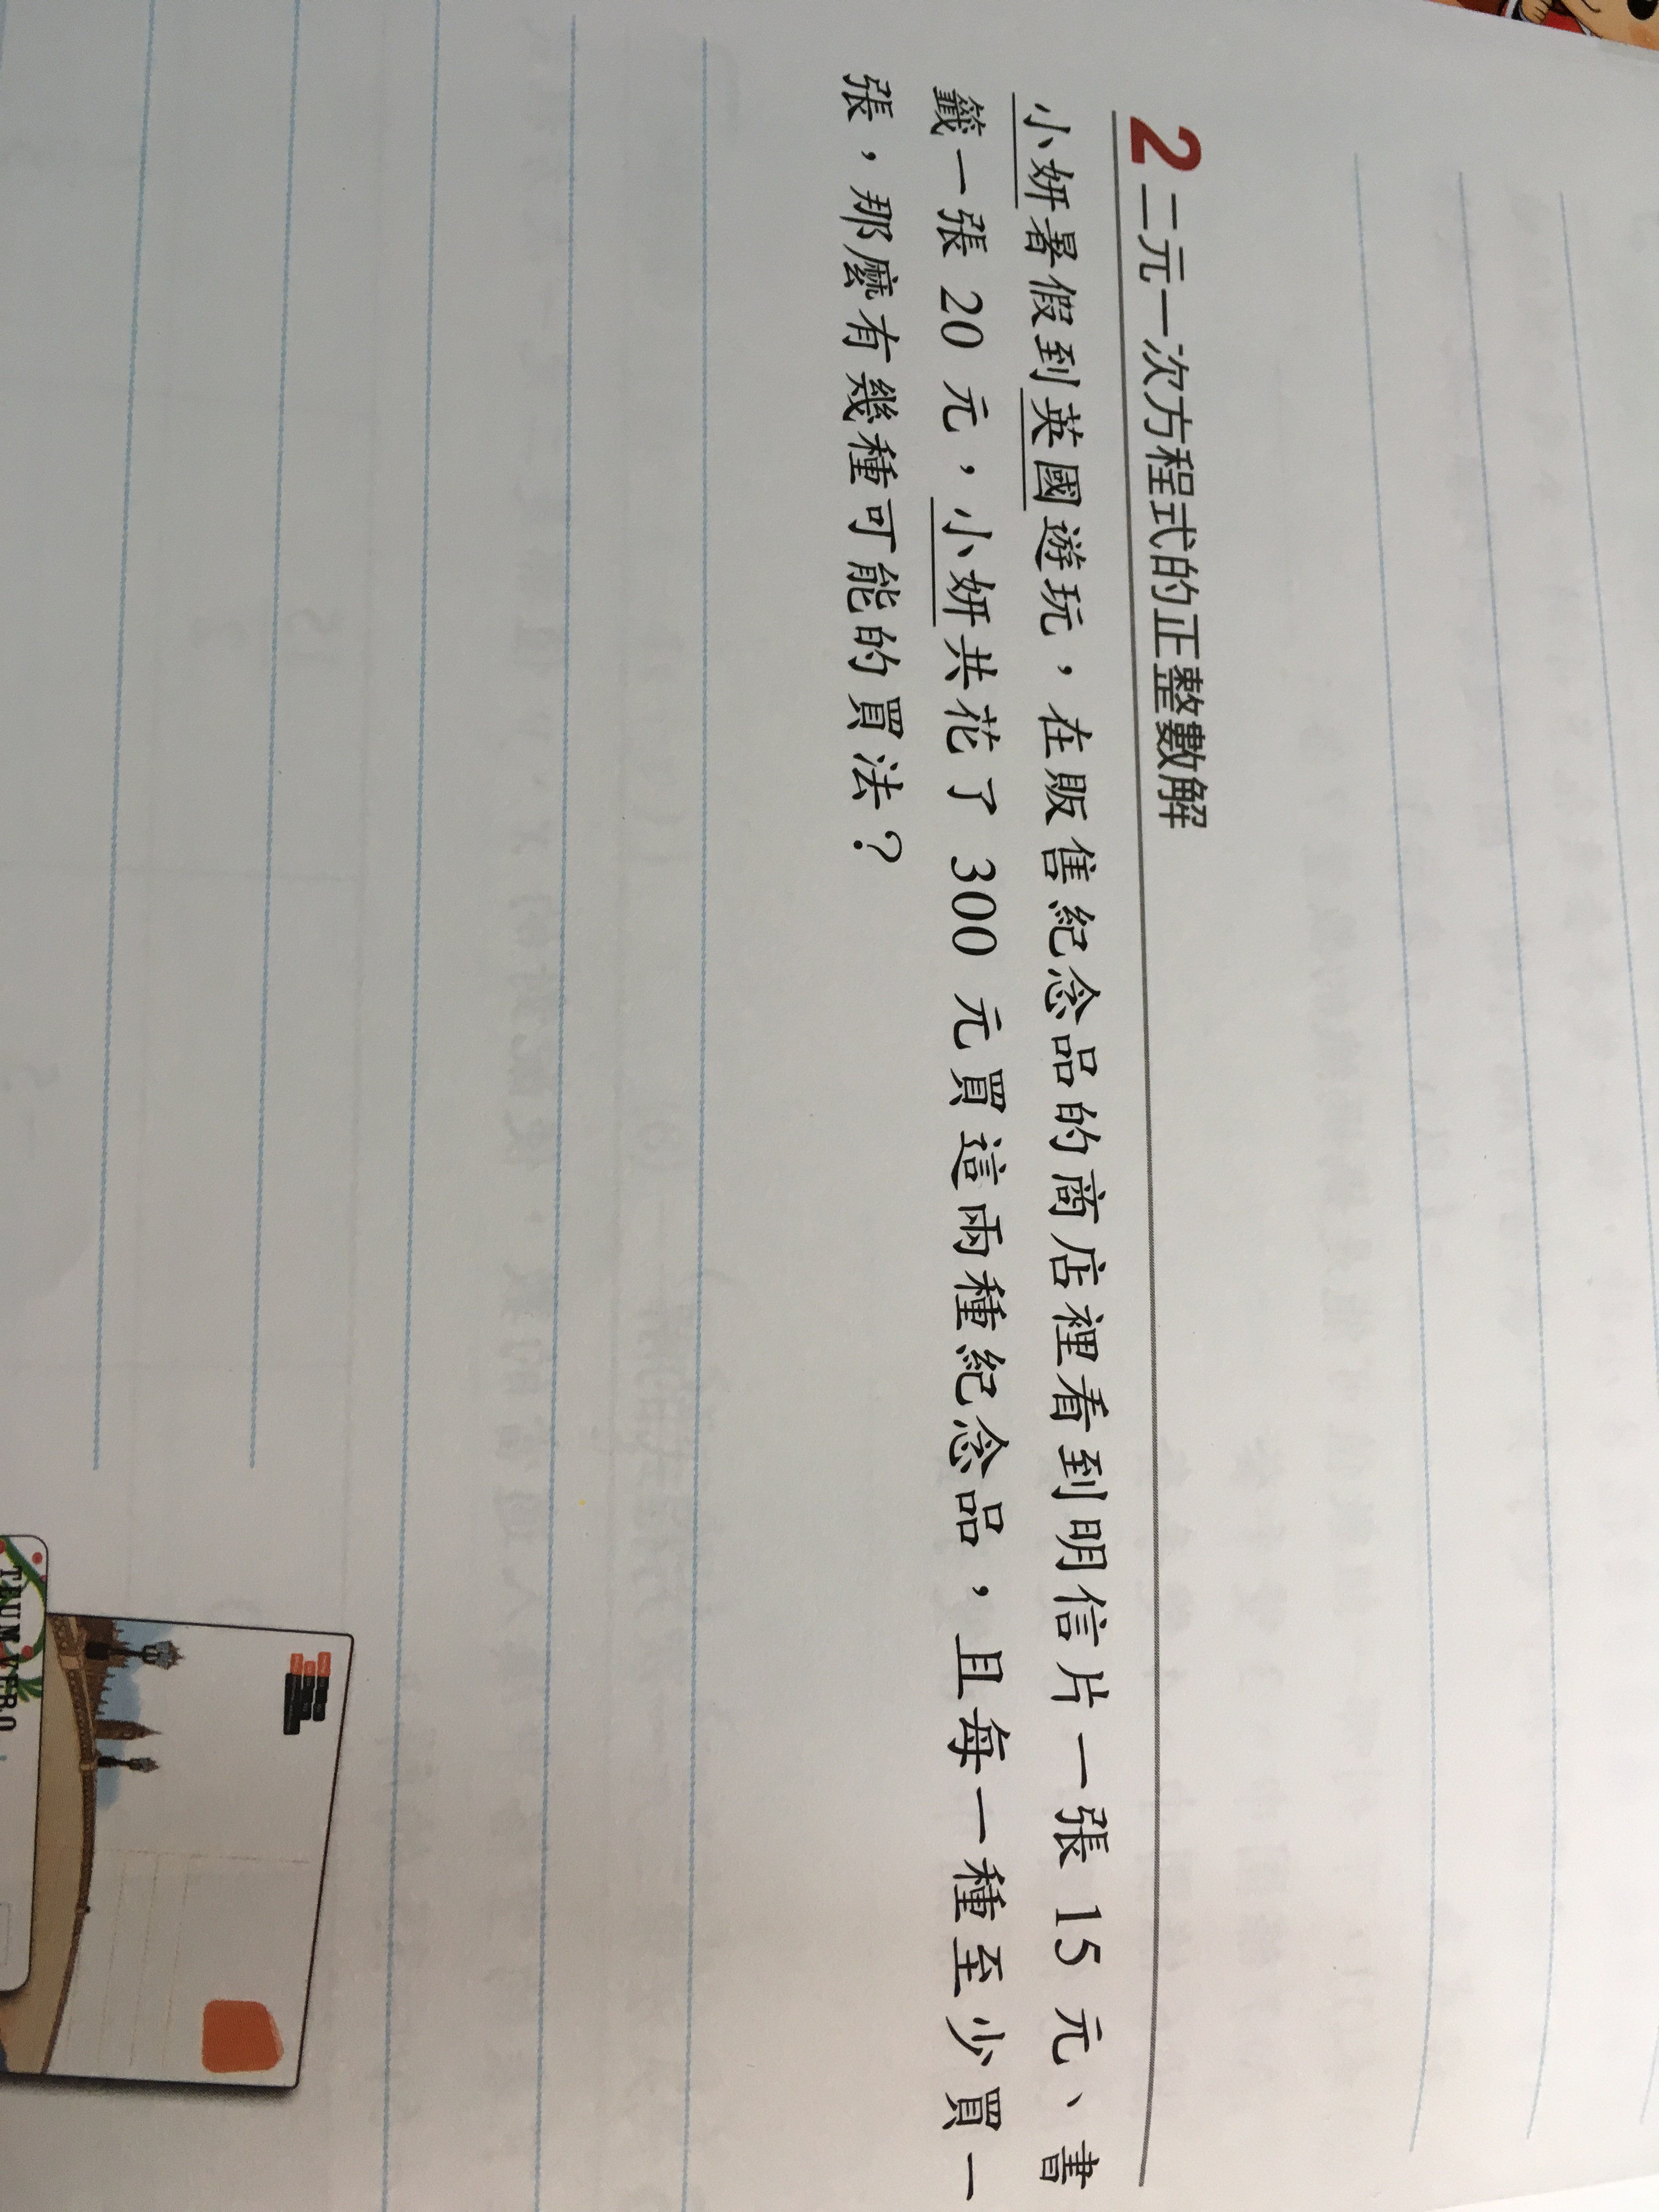 2 二元一次方程式的正整數解
小妍暑假到英國遊玩，在販售紀念品的商店裡看到明信片一張 15 元、書
籤一張 20 元，小妍共花了 300 元買這兩種紀念品，且每一種至少買一
張，那麼有幾種可能的買法？